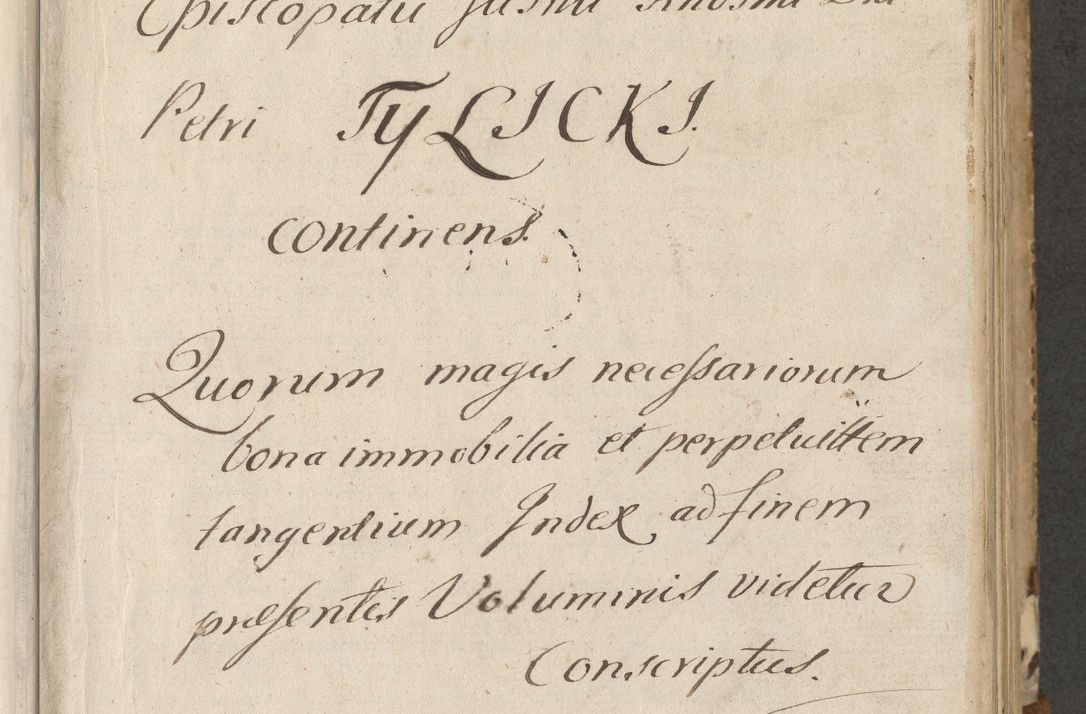 Episcopatu
Petri TYLICKI.
continens.
Quorum magis necessariorum
bona immobilia et perpetuittem
tangentium Index ad finem
præsentis Voluminis videtur
Conscriptus.